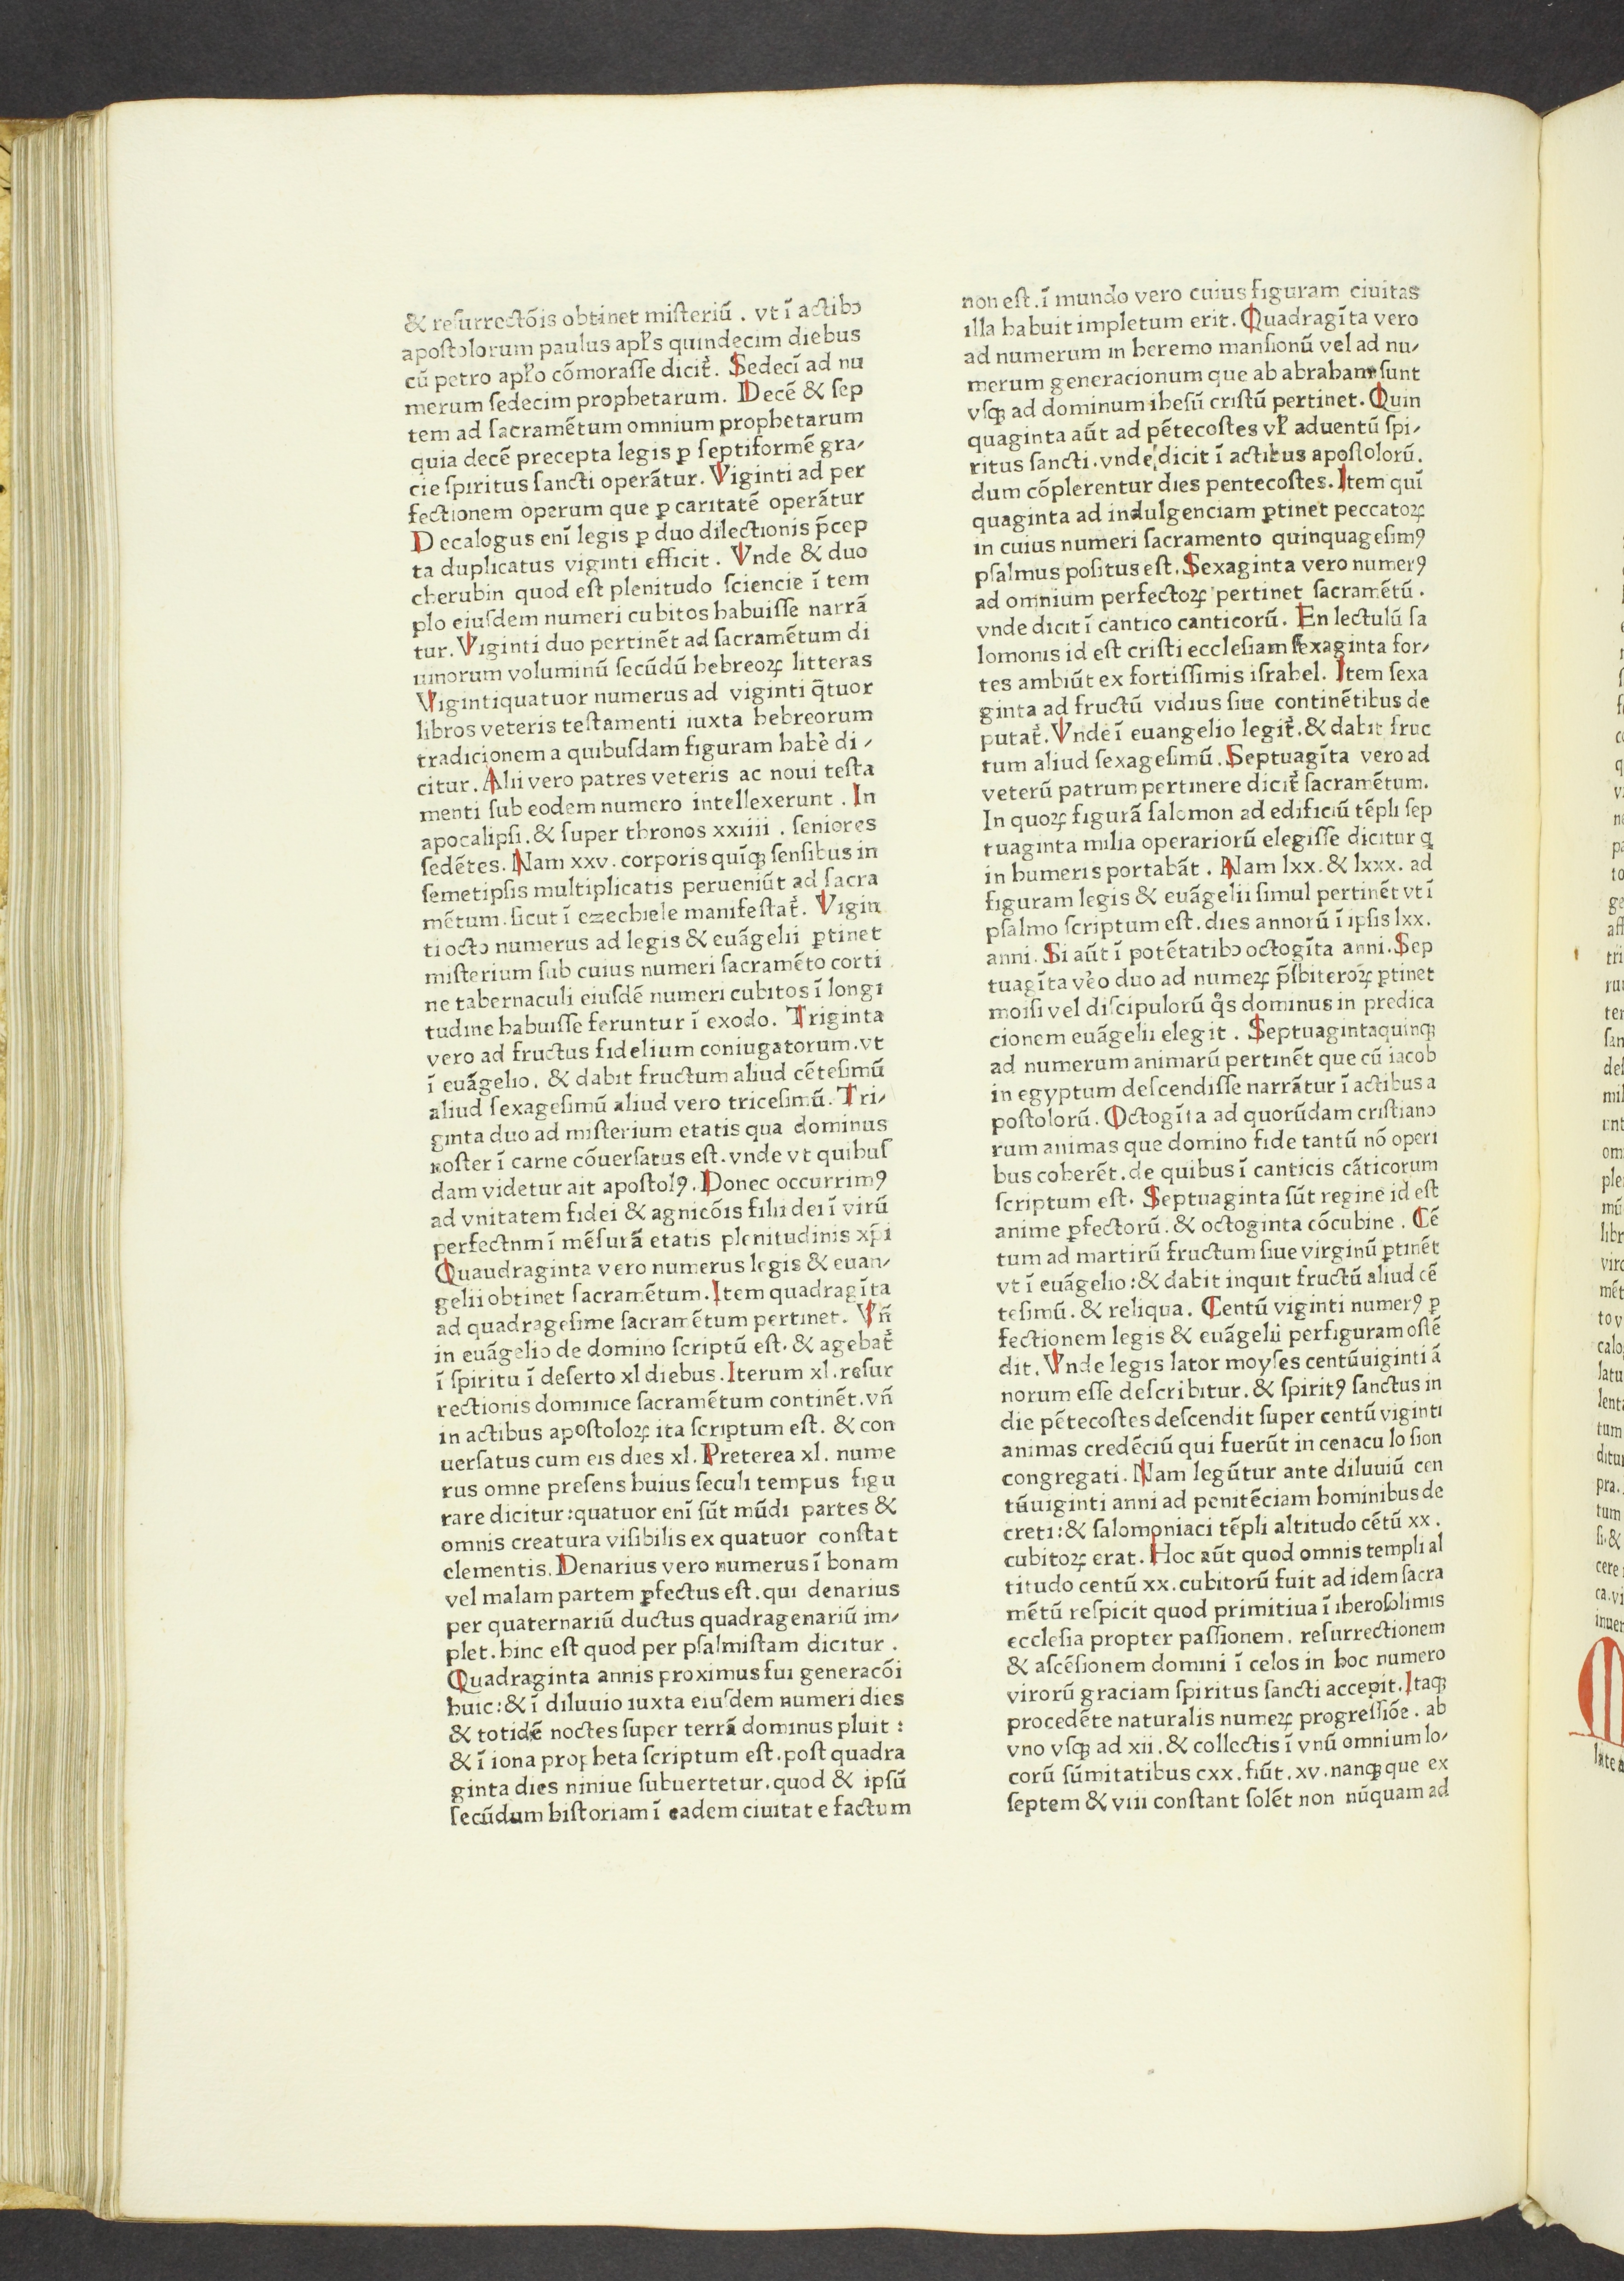 & reſurrectõis obtinet miſteriũ . vt ĩ actibꝫ
apoſtolorum paulus apl̃s quindecim diebus
cũ petro apl̃o cõmoraſſe dicit᷑. Sedecĩ ad nu
merum ſedecim prophetarum. Decẽ & ſep
tem ad ſacramẽtum omnium prophetarum
quia decẽ precepta legis ꝑ ſeptiformẽ gra⸗
cie ſpiritus ſancti operãtur. Viginti ad per
fectionem operum que ꝑ caritatẽ operãtur
Decalogus enĩ legis ꝑ duo dilectionis p̃cep
ta duplicatus viginti efficit . Vnde & duo
cherubin quod eſt plenitudo ſciencie ĩ tem
plo eiuſdem numeri cubitos habuiſſe narrã
tur. Viginti duo pertinẽt ad ſacramẽtum di
uinorum voluminũ ſecũdũ hebreoꝝ litteras
Vigintiquatuor numerus ad viginti q̃tuor
libros veteris teſtamenti iuxta hebreorum
tradicionem a quibuſdam figuram habẽ di⸗
citur. Alii vero patres veteris ac noui teſta
menti ſub eodem numero intellexerunt . In
apocalipſi. & ſuper thronos xxiiii . ſeniores
ſedẽtes. Nam xxv. corporis quĩqꝫ ſenſibus in
ſemetipſis multiplicatis perueniũt ad ſacra
mẽtum. ſicut ĩ ezechiele manifeſtat᷑. Vigin
ti octo numerus ad legis & euãgelii ꝑtinet
miſterium ſub cuius numeri ſacramẽto corti
ne tabernaculi eiuſdẽ numeri cubitos ĩ longi
tudine habuiſſe feruntur ĩ exodo. Triginta
vero ad fructus fidelium coniugatorum. vt
ĩ euãgelio. & dabit fructum aliud cẽteſimũ
aliud ſexageſimũ aliud vero triceſimũ. Tri⸗
ginta duo ad miſterium etatis qua dominus
noſter ĩ carne cõuerſatus eſt. vnde vt quibuſ
dam videtur ait apoſtolꝰ. Donec occurrimꝰ
ad vnitatem fidei & agnicõis filii dei ĩ virũ
perfectnm ĩ mẽſurã etatis plenitudinis xp̃i
Quaudraginta vero numerus legis & euan⸗
gelii obtinet ſacramẽtum. Item quadragĩta
ad quadrageſime ſacramẽtum pertinet. Vñ
in euãgelio de domino ſcriptũ eſt. & agebat᷑
ĩ ſpiritu ĩ deſerto xl diebus. Iterum xl. reſur
rectionis dominice ſacramẽtum continẽt. vñ
in actibus apoſtoloꝝ ita ſcriptum eſt. & con
uerſatus cum eis dies xl. Preterea xl. nume
rus omne preſens huius ſeculi tempus figu
rare dicitur : quatuor enĩ ſũt mũdi partes &
omnis creatura viſibilis ex quatuor conſtat
elementis. Denarius vero numerus ĩ bonam
vel malam partem ꝑfectus eſt. qui denarius
per quaternariũ ductus quadragenariũ im⸗
plet. hinc eſt quod per pſalmiſtam dicitur .
Quadraginta annis proximus fui generacõi
huic : & ĩ diluuio iuxta eiuſdem numeri dies
& totidẽ noctes ſuper terrã dominus pluit :
& ĩ iona propheta ſcriptum eſt. poſt quadra
ginta dies niniue ſubuertetur. quod & ipſũ
ſecũdum hiſtoriam ĩ eadem ciuitat e factum
non eſt. ĩ mundo vero cuius figuram ciuitas
illa habuit impletum erit. Quadragĩta vero
ad numerum in heremo manſionũ vel ad nu⸗
merum generacionum que ab abraham ſunt
vſqꝫ ad dominum iheſũ criſtũ pertinet. Quin
quaginta aũt ad pẽtecoſtes vl̃ aduentũ ſpi⸗
ritus ſancti. vnde dicit ĩ actibus apoſtolorũ.
dum cõplerentur dies pentecoſtes. Item quĩ
quaginta ad indulgenciam ꝑtinet peccatoꝝ
in cuius numeri ſacramento quinquageſimꝰ
pſalmus poſitus eſt. Sexaginta vero numerꝰ
ad omnium perfectoꝝ pertinet ſacramẽtũ .
vnde dicit ĩ cantico canticorũ. En lectulũ ſa
lomonis id eſt criſti eccleſiam ſexaginta for⸗
tes ambiũt ex fortiſſimis iſrahel. Item ſexa
ginta ad fructũ vidius ſiue continẽtibus de
putat᷑. Vnde ĩ euangelio legit᷑. & dabit fruc
tum aliud ſexageſimũ. Septuagĩta vero ad
veterũ patrum pertinere dicit᷑ ſacramẽtum.
In quoꝝ figurã ſalomon ad edificiũ tẽpli ſep
tuaginta milia operariorũ elegiſſe dicitur q̨
in humeris portabãt . Nam lxx. & lxxx. ad
figuram legis & euãgelii ſimul pertinẽt vt ĩ
pſalmo ſcriptum eſt. dies annorũ ĩ ipſis lxx.
anni. Si aũt ĩ potẽtatibꝫ octogĩta anni. Sep
tuagĩta vẽo duo ad numeꝝ p̃ſbiteroꝝ ꝑtinet
moiſi vel diſcipulorũ q̊s dominus in predica
cionem euãgelii elegit . Septuagintaquinqꝫ
ad numerum animarũ pertinẽt que cũ iacob
in egyptum deſcendiſſe narrãtur ĩ actibus a
poſtolorũ. Octogĩta ad quorũdam criſtiano
rum animas que domino fide tantũ nõ operi
bus coherẽt. de quibus ĩ canticis cãticorum
ſcriptum eſt. Septuaginta ſũt regine id eſt
anime ꝑfectorũ. & octoginta cõcubine . Cẽ
tum ad martirũ fructum ſiue virginũ ꝑtinẽt
vt ĩ euãgelio : & dabit inquit fructũ aliud cẽ
teſimũ. & reliqua. Centũ viginti numerꝰ ꝑ
fectionem legis & euãgelii perfiguram oſtẽ
dit. Vnde legis lator moyſes centũuiginti ã
norum eſſe deſcribitur. & ſpiritꝰ ſanctus in
die pẽtecoſtes deſcendit ſuper centũ viginti
animas credẽciũ qui fuerũt in cenacu lo ſion
congregati. Nam legũtur ante diluuiũ cen
tũuiginti anni ad penitẽciam hominibus de
creti : & ſalomoniaci tẽpli altitudo cẽtũ xx .
cubitoꝝ erat. Hoc aũt quod omnis templi al
titudo centũ xx. cubitorũ fuit ad idem ſacra
mẽtũ reſpicit quod primitiua ĩ iheroſolimis
eccleſia propter paſſionem. reſurrectionem
& aſcẽſionem domini ĩ celos in hoc numero
virorũ graciam ſpiritus ſancti accepit. Itaqꝫ
procedẽte naturalis numeꝝ progreſſiõe. ab
vno vſqꝫ ad xii. & collectis ĩ vnũ omnium lo⸗
corũ ſũmitatibus cxx. fiũt. xv. nanqꝫ que ex
ſeptem & viii conſtant ſolẽt non nũquam ad